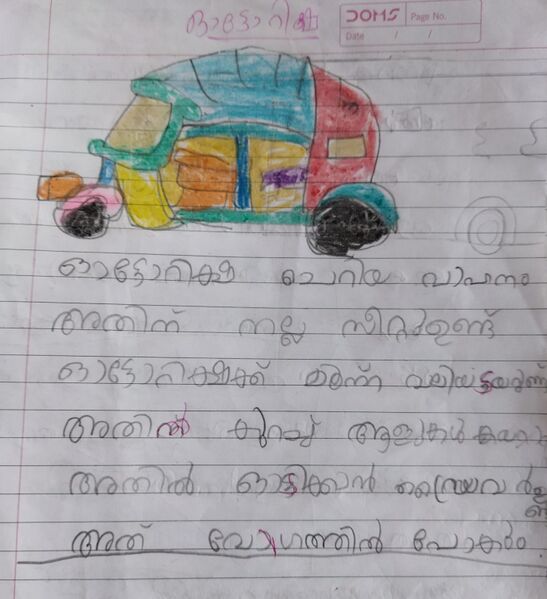 ഓട്ടോറിക്ഷ
DOMS
Page No.
Date / /
ഓട്ടോറിക്ഷ ചെറിയ വാഹനം
അതിന് നല്ല സീറ്റുഉണ്ട്
ഓട്ടോറിക്ഷക്ക് മൂന്ന്
അതിൽ കുറച്ച് ആളുകൾ കയറും
അതിൽ ഓടിക്കാൻ ഡ്രൈവർ ഉണ്ട്
അത് വേഗത്തിൽ പോകും